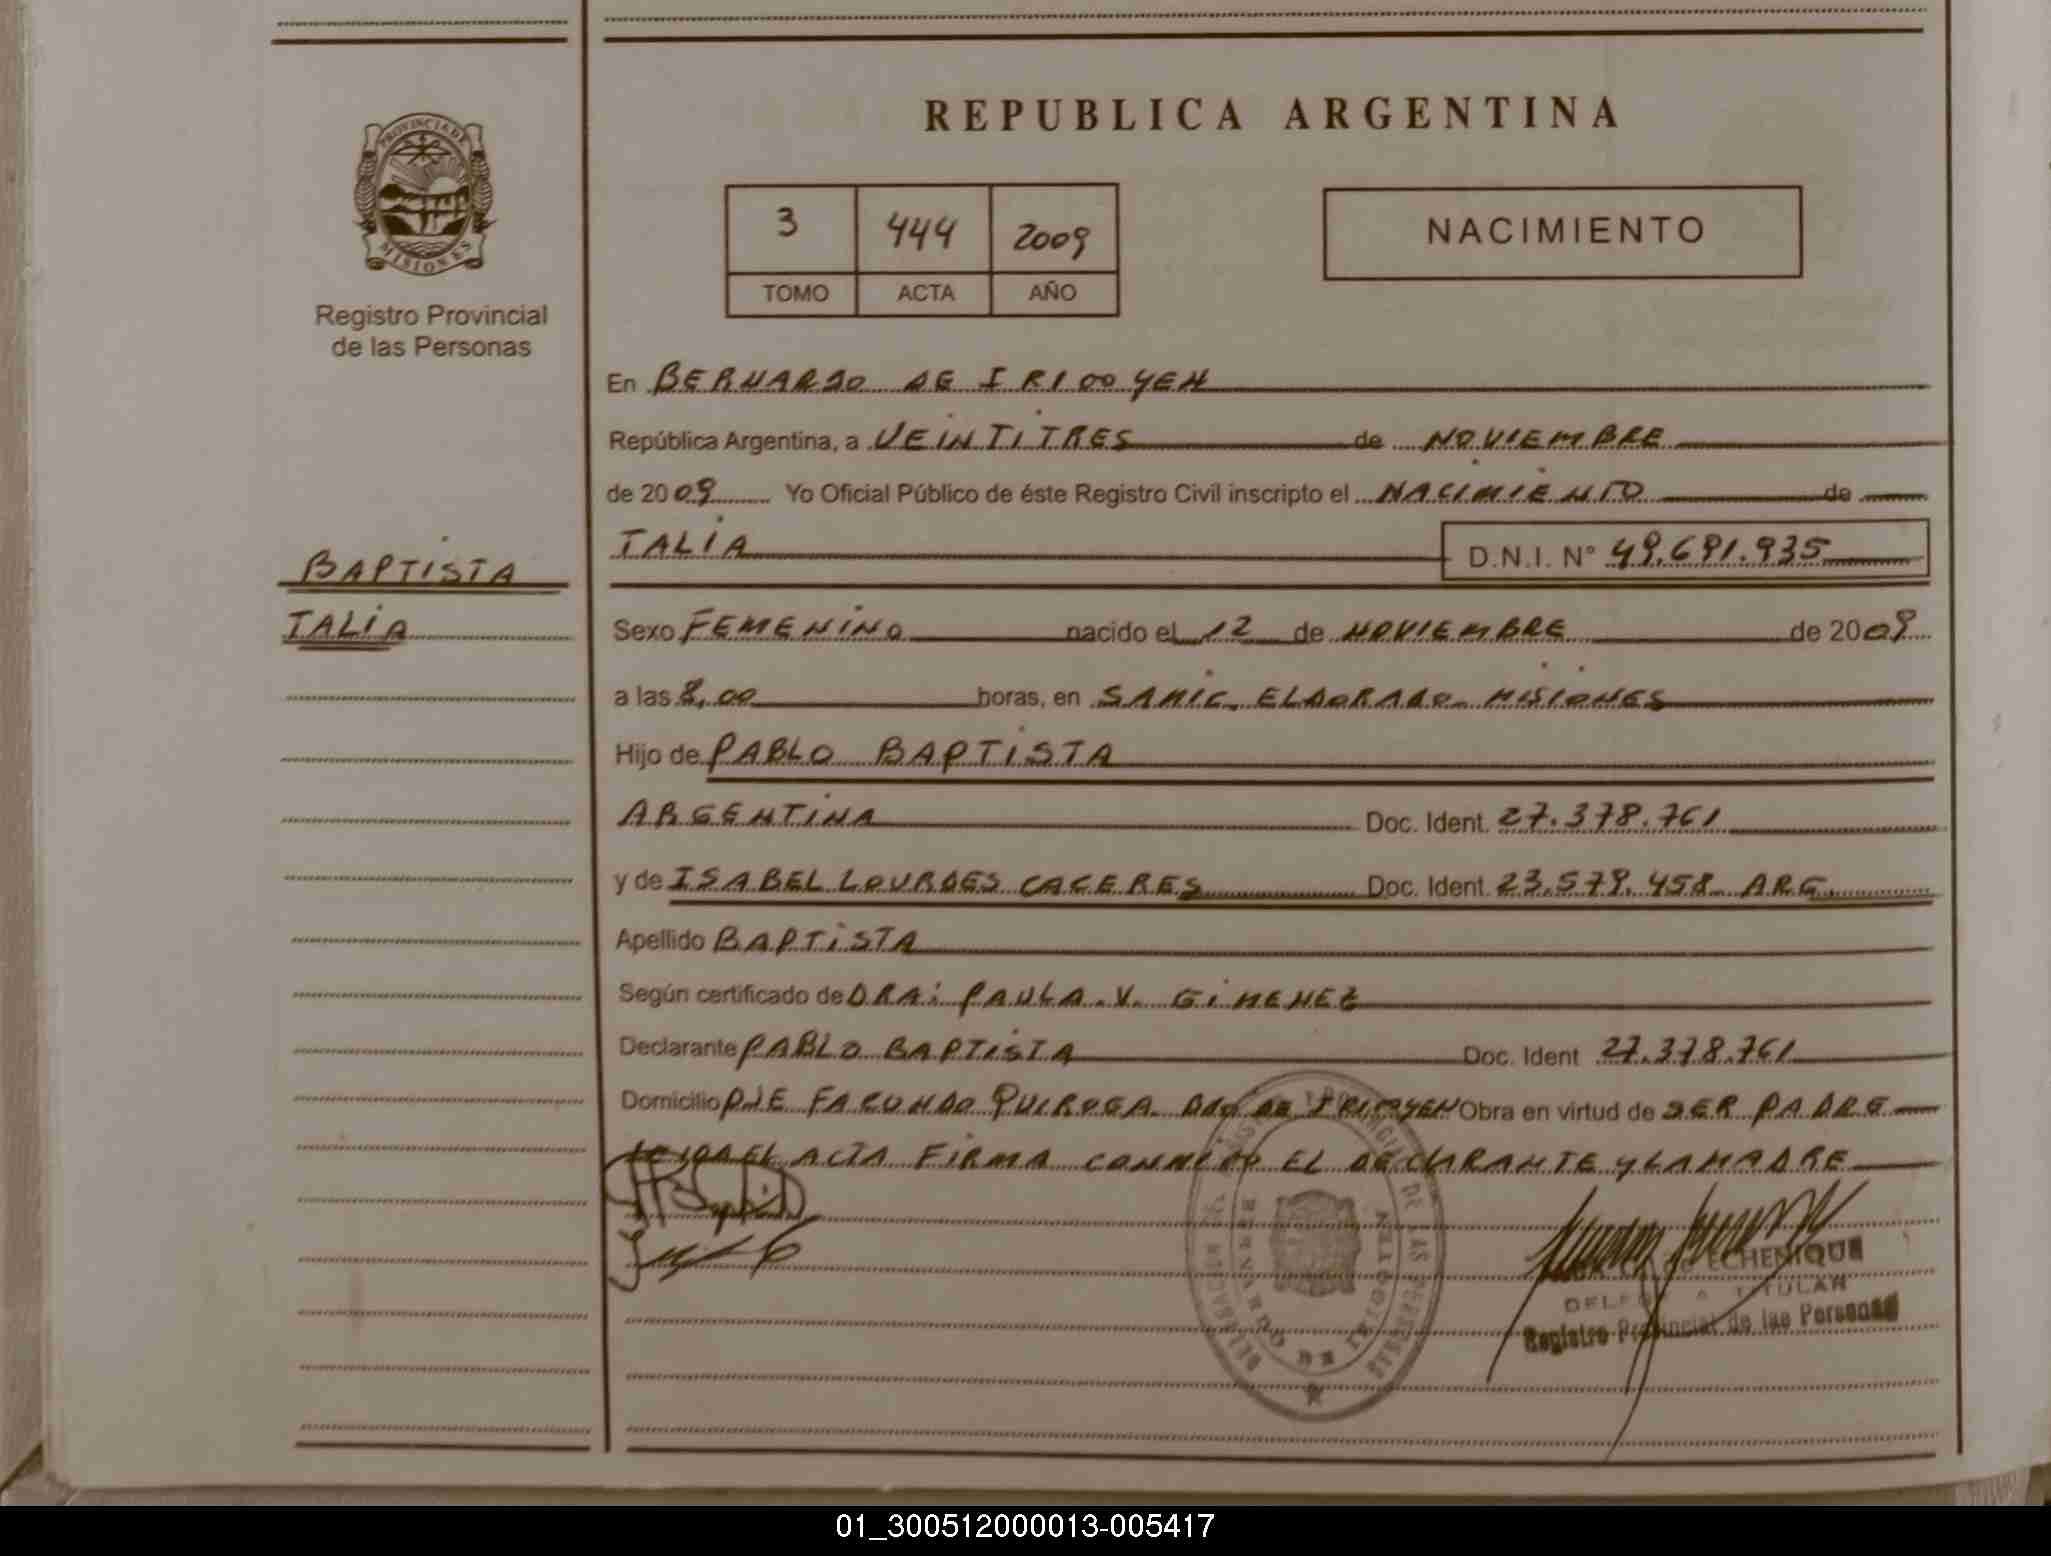 REPUBLICA ARGENTINA
PROVINCIA DE
MISIONES
Registro Provincial
de las Personas
3 444 2009
TOMO ACTA AÑO
NACIMIENTO
En BERNARDO DE IRIGOYEN
República Argentina, a VEINTITRES de NOVIEMBRE
de 2009 Yo Oficial Público de éste Registro Civil inscripto el NACIMIENTO de
TALIA D.N.I. N° 49.691.935
BAPTISTA
TALIA
Sexo FEMENINO nacido el 12 de NOVIEMBRE de 2009
a las 8,00 horas, en SAMIC. ELDORADO. MISIONES
Hijo de PABLO BAPTISTA
ARGENTINA Doc. Ident. 27.378.761
y de ISABEL LOURDES CACERES Doc. Ident. 23.579.458 ARG.
Apellido BAPTISTA
Según certificado de DRA: PAULA.V. GIMENEZ
Declarante PABLO BAPTISTA Doc. Ident 27.378.761
Domicilio PJE FACUNDO QUIROGA. BDO DE IRIGOYEN Obra en virtud de SER PADRE
LEIDA EL ACTA FIRMA CONMIGO EL DECLARANTE Y LA MADRE
BERNARDO DE IRIGOYEN
DE LAS PERSONAS
DE ECHENIQUE
TITULAR
Registro Provincial de las Personas
01_300512000013-005417